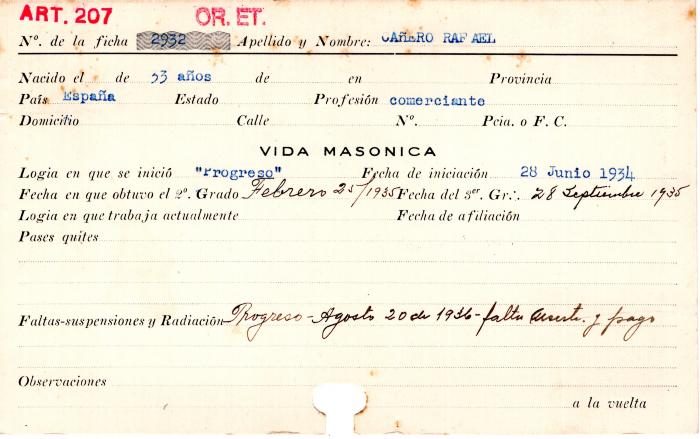 ART. 207 OR. ET.
Nº. de la ficha 2932 Apellido y Nombre: CAÑERO RAFAEL
Nacido el de 53 años de en Provincia
País España Estado Profesión comerciante
Domicilio Calle Nº. Pcia. o F. C.
VIDA MASONICA
Logia en que se inició "Progreso" Fecha de iniciación 28 Junio 1934
Fecha en que obtuvo el 2º. Grado Febrero 25/1935 Fecha del 3er. Gr∴. 28 Septiembre 1935
Logia en que trabaja actualmente Fecha de afiliación
Pases quites
Faltas-suspensiones y Radiación Progreso - Agosto 20 de 1936 - falta y pago
Observaciones
a la vuelta